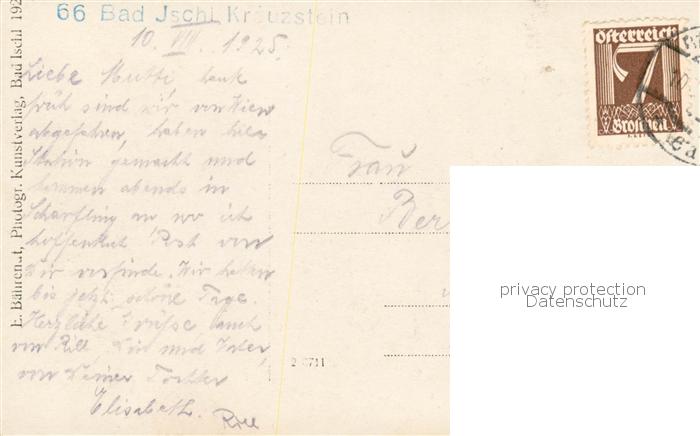 66 Bad Jschl Kreuzstein
10. VII. 1925.
Liebe Mutti, heut
früh sind wir von Wien
abgefahren, haben hier
Station gemacht und
kommen abends in
Scharfling an wo ich
hoffentlich Post von
Dir vorfinde. Wir hatten
bis jetzt schöne Tage.
Herzliche Grüße auch
von Rill, Dir und Vater,
von Deiner Tochter
Elisabeth.
Frau
Ber
Österreich
7
Groschen
E. Bährendt, Photogr. Kunstverlag, Bad Ischl 192
privacy protection
Datenschutz